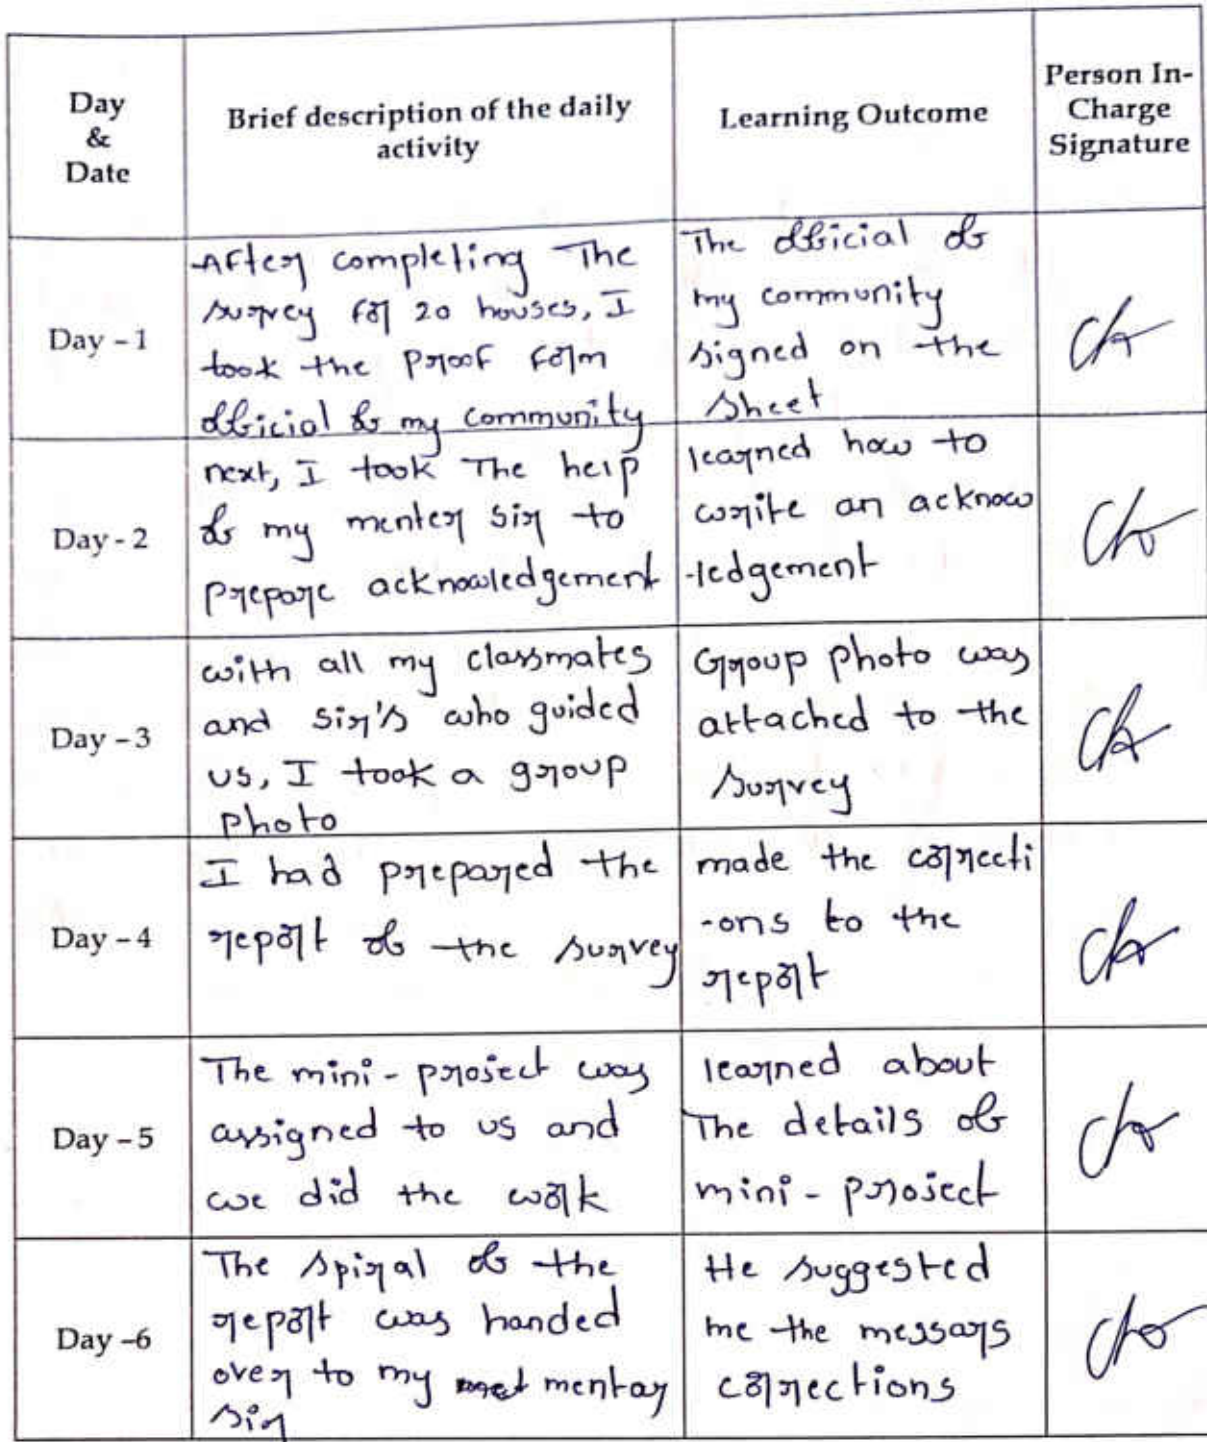 Day
&
Date
Brief description of the daily
activity
Learning Outcome
Person In-
Charge
Signature
Day - 1
After completing The
survey for 20 houses, I
took the proof form
official of my community
The official of
my community
signed on the
sheet
Day - 2
next, I took The help
of my menter sir to
prepare acknowledgement
learned how to
write an acknow
-ledgement
Day - 3
with all my classmates
and sir's who guided
us, I took a group
photo
Group photo was
attached to the
survey
Day - 4
I had prepared the
report of the survey
made the correcti
-ons to the
report
Day - 5
The mini - project was
assigned to us and
we did the work
learned about
The details of
mini - project
Day -6
The spiral of the
report was handed
over to my mentar
sir
He suggested
me the messars
corrections